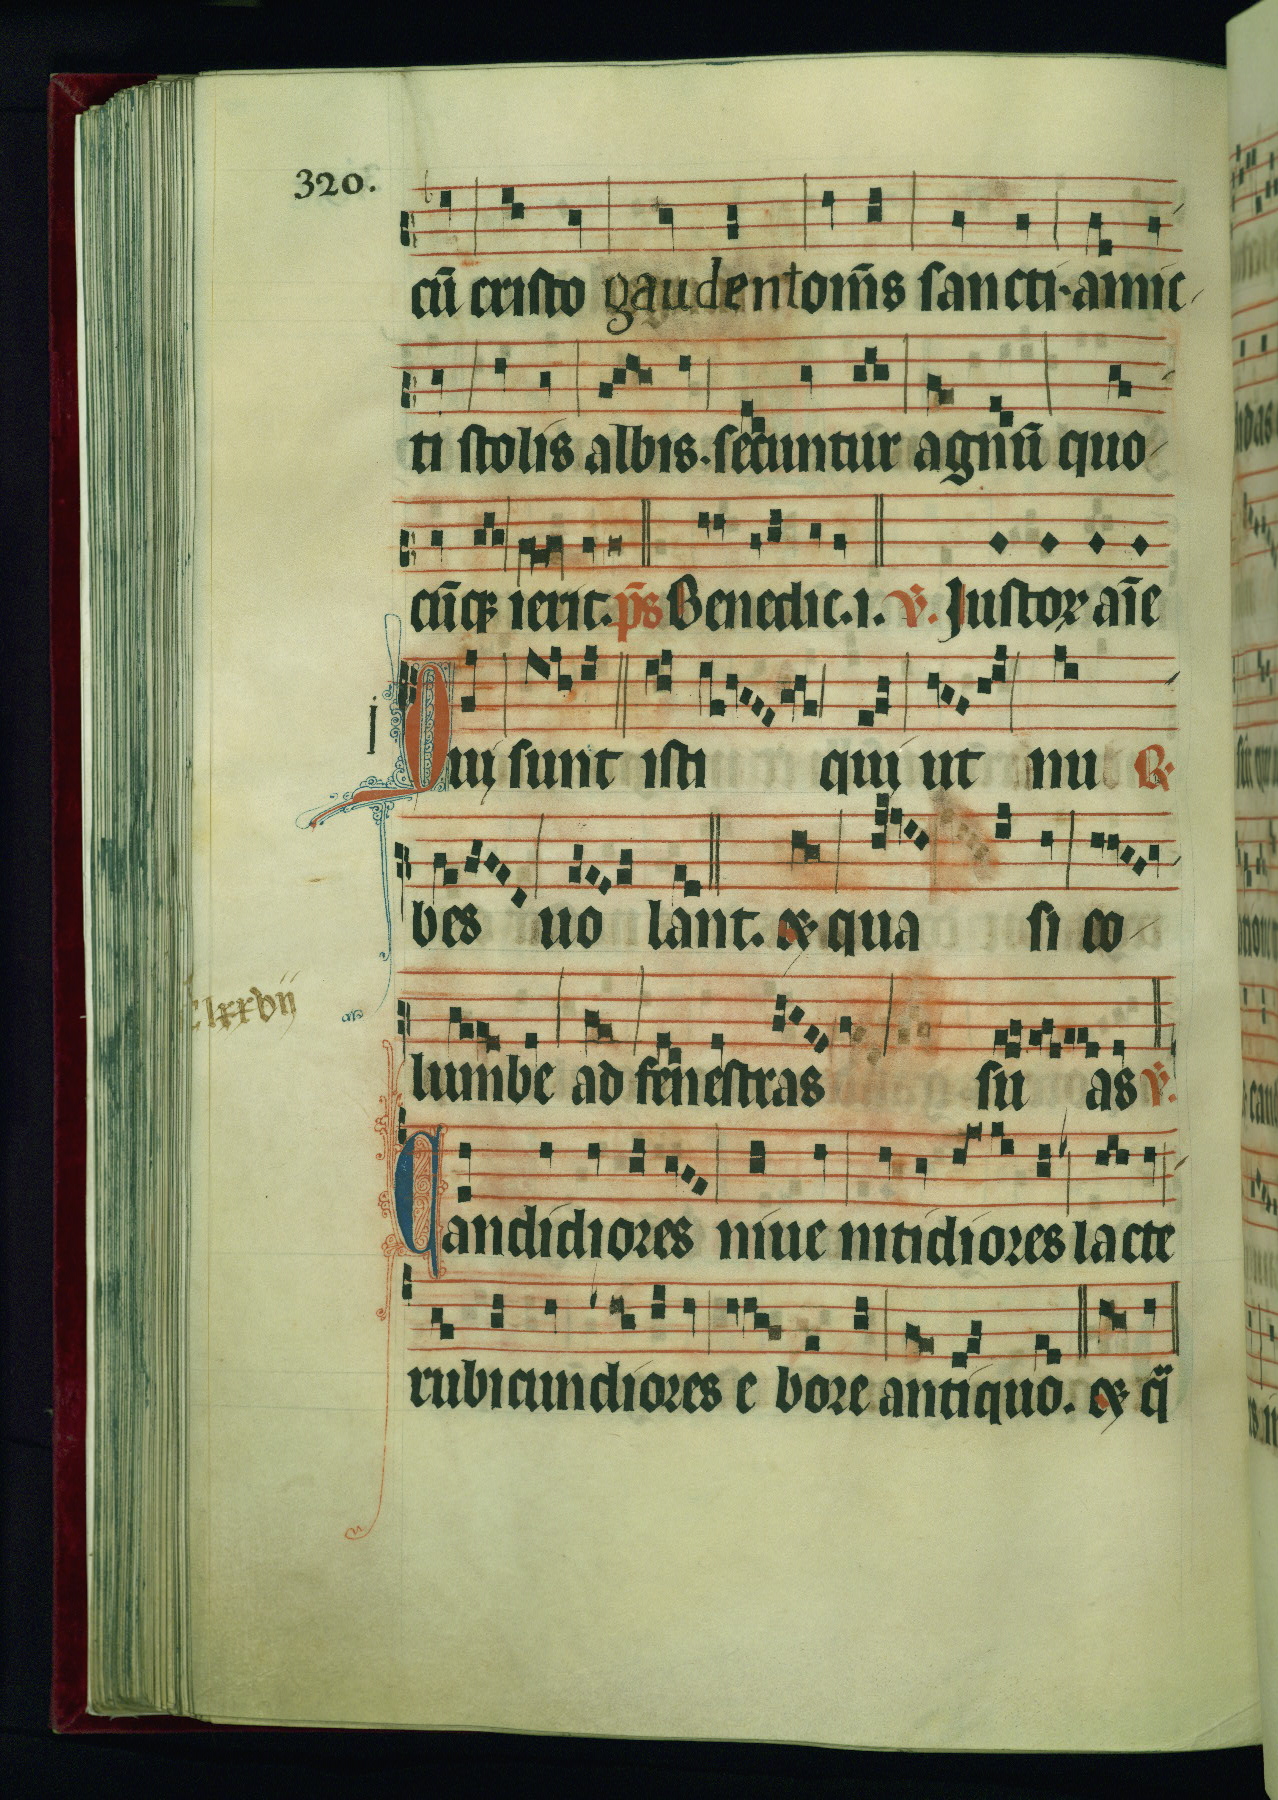 320.
cū cristo gaudent om̄s sancti·amic
ti stolis albis.secuntur agnū quo
cūqꝫ ierit. p̄s Benedic.i. ℣. Justoꝝ aīe
i
Qui sunt isti qui ut nu ℟
bes uo lant. ⁊ qua si co
Clxxvii
lumbe ad fenestras su as ℣.
Candidiores niue nitidiores lacte
rubicundiores e bore antiquo. ⁊ q̄